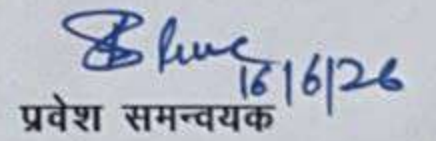 16/6/26
प्रवेश समन्वयक